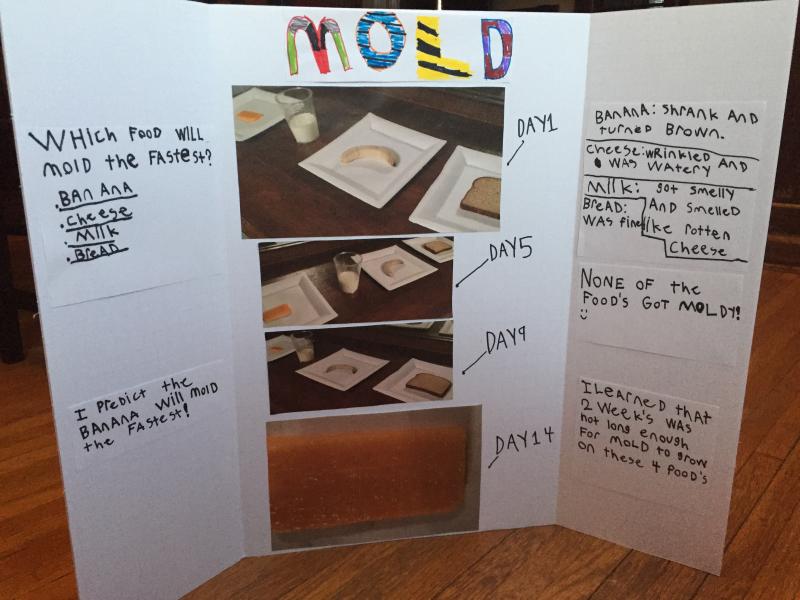 MOLD
WHICH FOOD WILL
MOLD the FASTEST?
.BANANA
.Cheese
.Milk
.BReAD
I PReDict the
BANANA Will MOLD
the FASTEST!
DAY1
DAY5
DAY9
DAY14
BANANA: SHRANK AND
turned BROWN.
Cheese: WRINKLED AND
WAS WATERY
Milk: got smelly
AND SMELLED
like ROTTEN
Cheese
BReAD:
WAS fine
NONE OF the
FOOD'S GOT MOLDY!
I LeARNeD tHAt
2 Week'S WAS
not long enough
FOR MOLD to gROW
ON these 4 FOOD'S